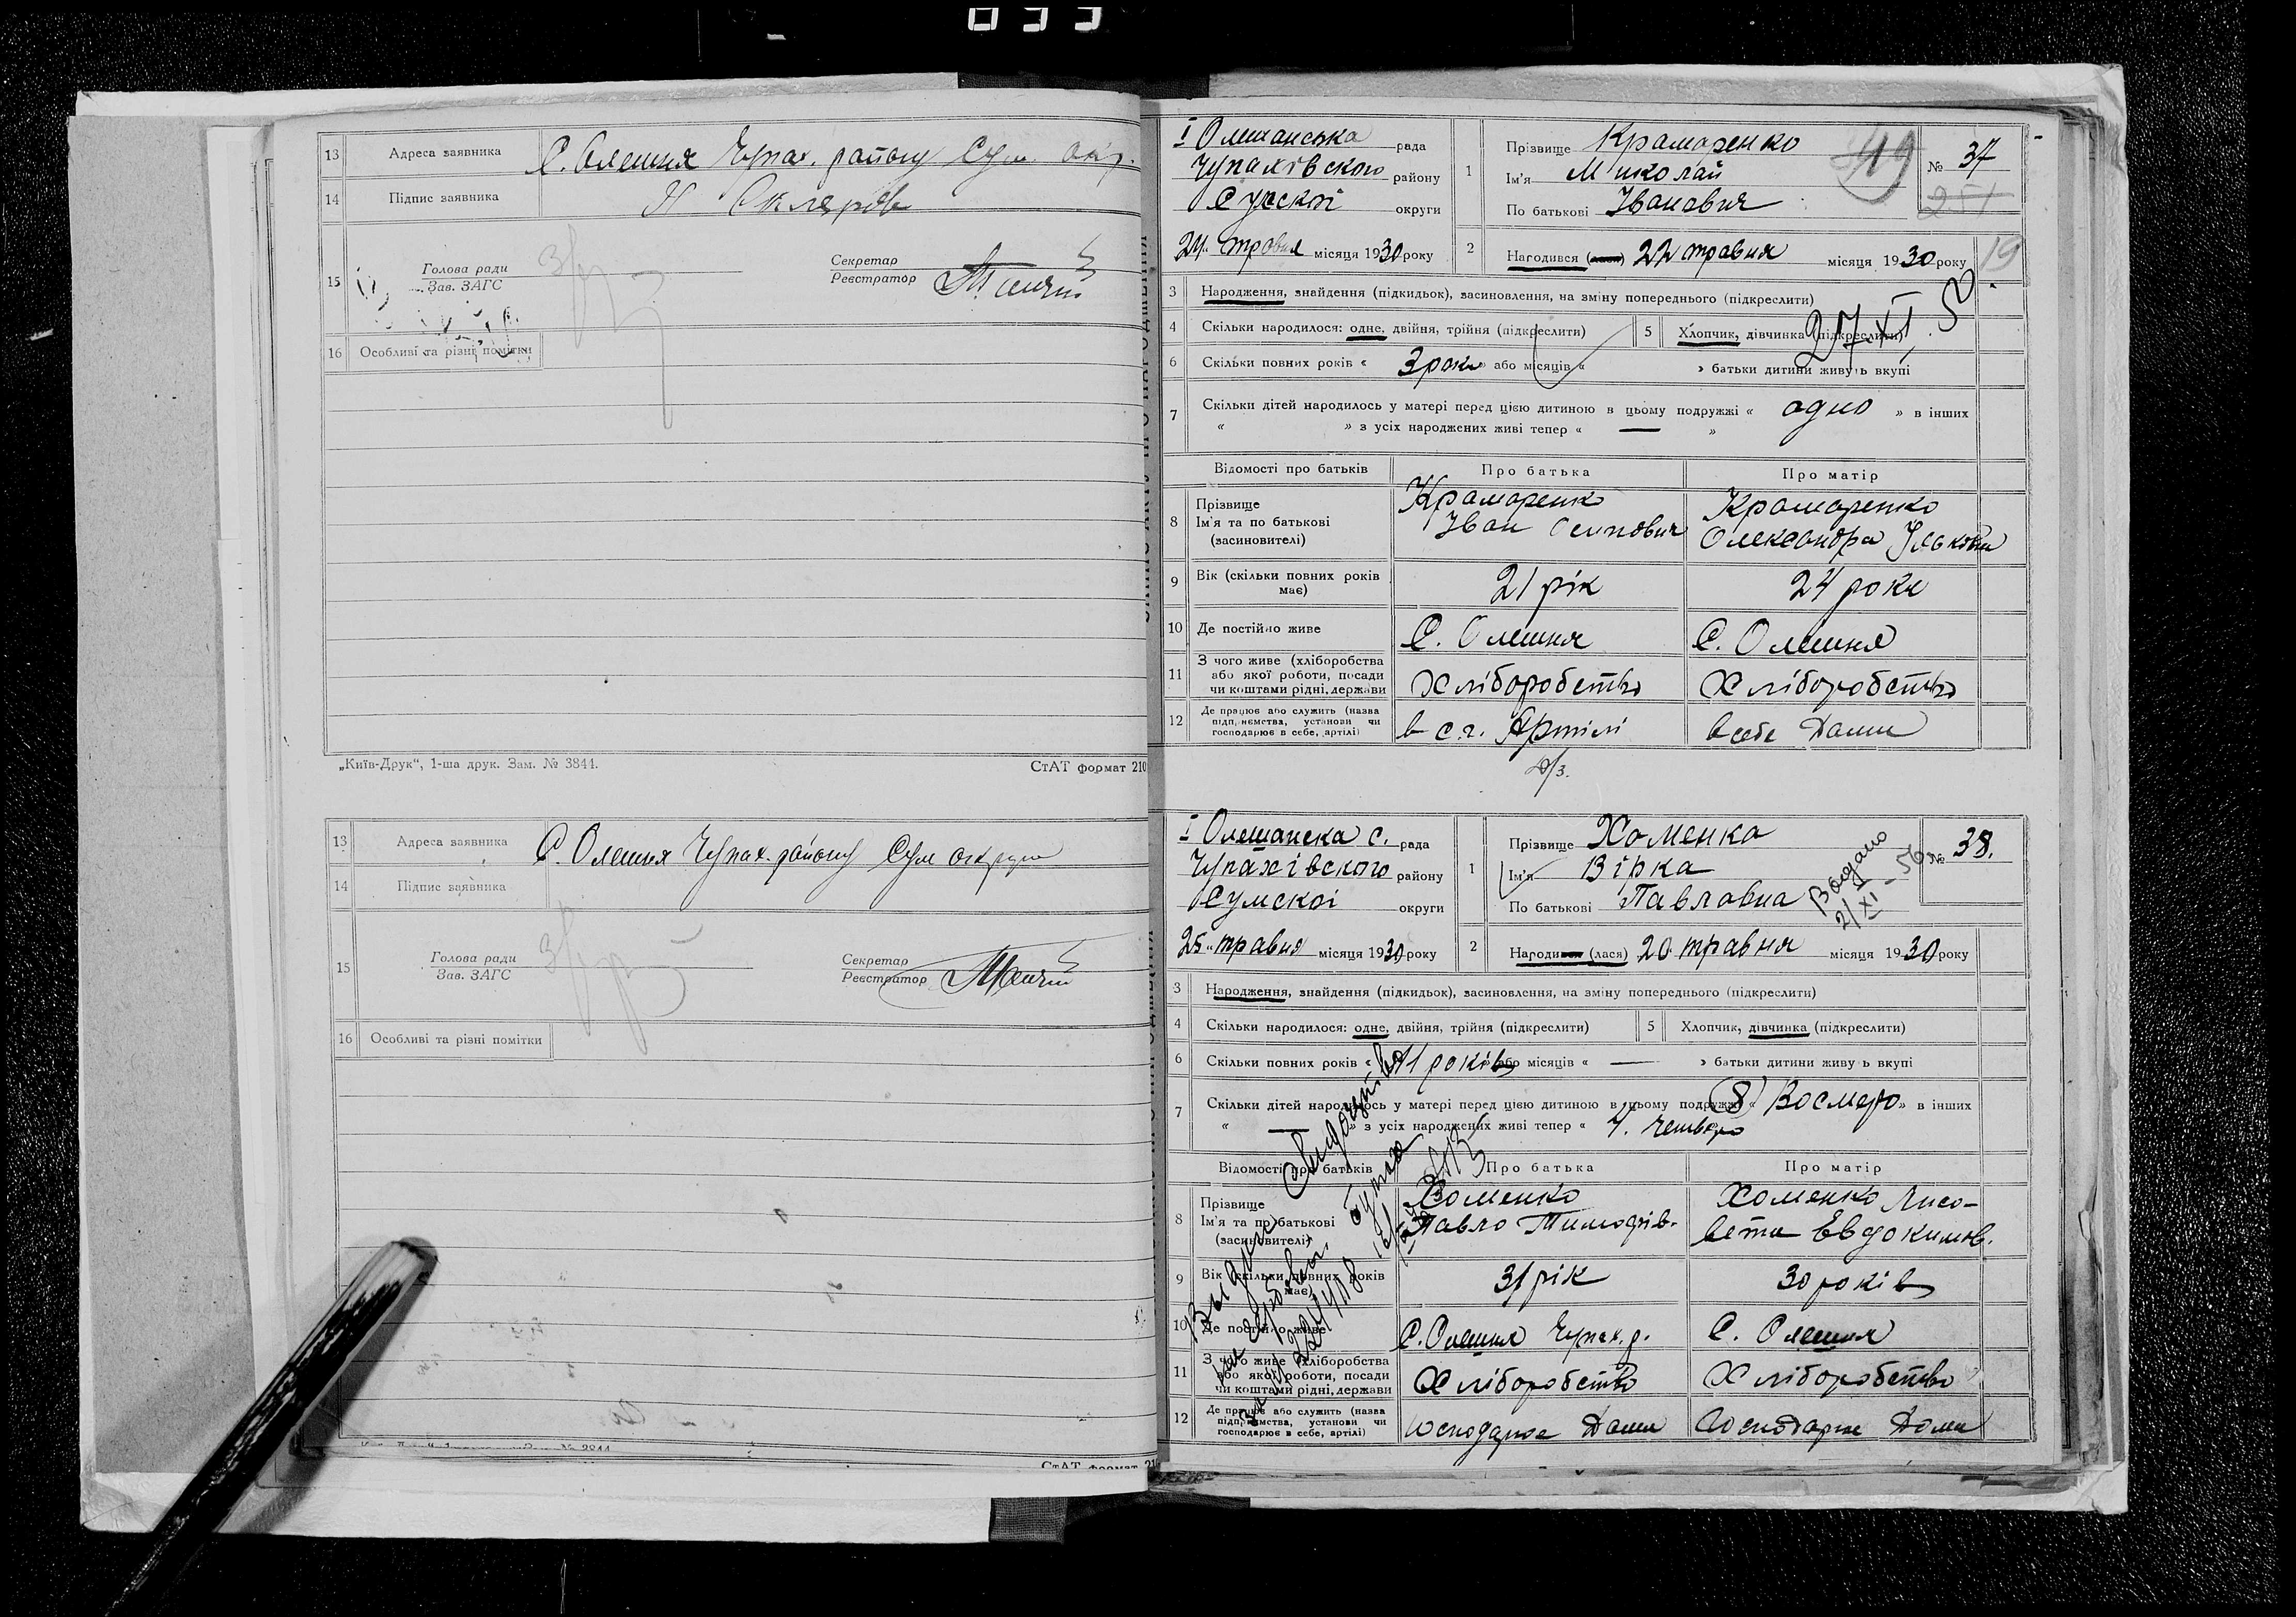 033
13 Адреса заявника С. Олешня Чупах. району Сум. окр.
14 Підпис заявника
15 Голова ради
Зав. ЗАГС
Секретар
Реєстратор
16 Особливі та різні помітки
„Київ-Друк“, 1-ша друк. Зам. № 3844.
СтАТ формат 210
13 Адреса заявника С. Олешня Чупах. району Сум округи
14 Підпис заявника
15 Голова ради
Зав. ЗАГС
Секретар
Реєстратор
16 Особливі та різні помітки
СтАТ формат 21
I Олешанська рада
Чупахівского району
Сумскоі округи
24. травня місяця 1930 року
1 Прізвище Крамаренко
Ім'я Миколай
По батькові Іванович
№ 37
19
2 Народився (лася) 22 травня місяця 1930 року
3 Народження, знайдення (підкидьок), засиновлення, на зміну попереднього (підкреслити)
4 Скільки народилося: одне, двійня, трійня (підкреслити)
5 Хлопчик, дівчинка (підкреслити)
6 Скільки повних років « 3 роки » або місяців « » батьки дитини живуть вкупі
7 Скільки дітей народилось у матері перед цією дитиною в цьому подружжі « одно » в інших
« » з усіх народжених живі тепер « — »
Відомості про батьків Про батька Про матір
8 Прізвище
Ім'я та по батькові
(засиновителі)
Крамаренко
Іван Осипович
Крамаренко
Олександра Ільківна
9 Вік (скільки повних років має) 21 рік 24 роки
10 Де постійно живе С. Олешня С. Олешня
11 З чого живе (хліборобства
або якої роботи, посади
чи коштами рідні, держави
Хліборобство Хліборобство
12 Де працює або служить (назва
підприємства, установи чи
господарює в себе, артілі)
в с.г. Артілі в себе Дома
I Олешанска с. рада
Чупахівского району
Сумскоі округи
25 травня місяця 1930 року
1 Прізвище Хоменка
Ім'я Вірка
По батькові Павловна
№ 38.
Видано
2/XI - 56
2 Народився (лася) 20 травня місяця 1930 року
3 Народження, знайдення (підкидьок), засиновлення, на зміну попереднього (підкреслити)
4 Скільки народилося: одне, двійня, трійня (підкреслити)
5 Хлопчик, дівчинка (підкреслити)
6 Скільки повних років « 11 років » або місяців « — » батьки дитини живуть вкупі
7 Скільки дітей народилось у матері перед цією дитиною в цьому подружжі « 8) Восмеро » в інших
« — » з усіх народжених живі тепер « 4. Четверо
Відомості про батьків Про батька Про матір
8 Прізвище
Ім'я та по батькові
(засиновителі)
Хоменко
Павло Тимофів.
Хоменко Лисо-
вета Евдокимов.
9 Вік (скільки повних років має) 31 рік 30 років
10 Де постійно живе С. Олешня Чупах. р. С. Олешня
11 З чого живе (хліборобства
або якої роботи, посади
чи коштами рідні, держави
Хліборобство Хліборобство
12 Де працює або служить (назва
підприємства, установи чи
господарює в себе, артілі)
Господарює Дома Господарює Дома